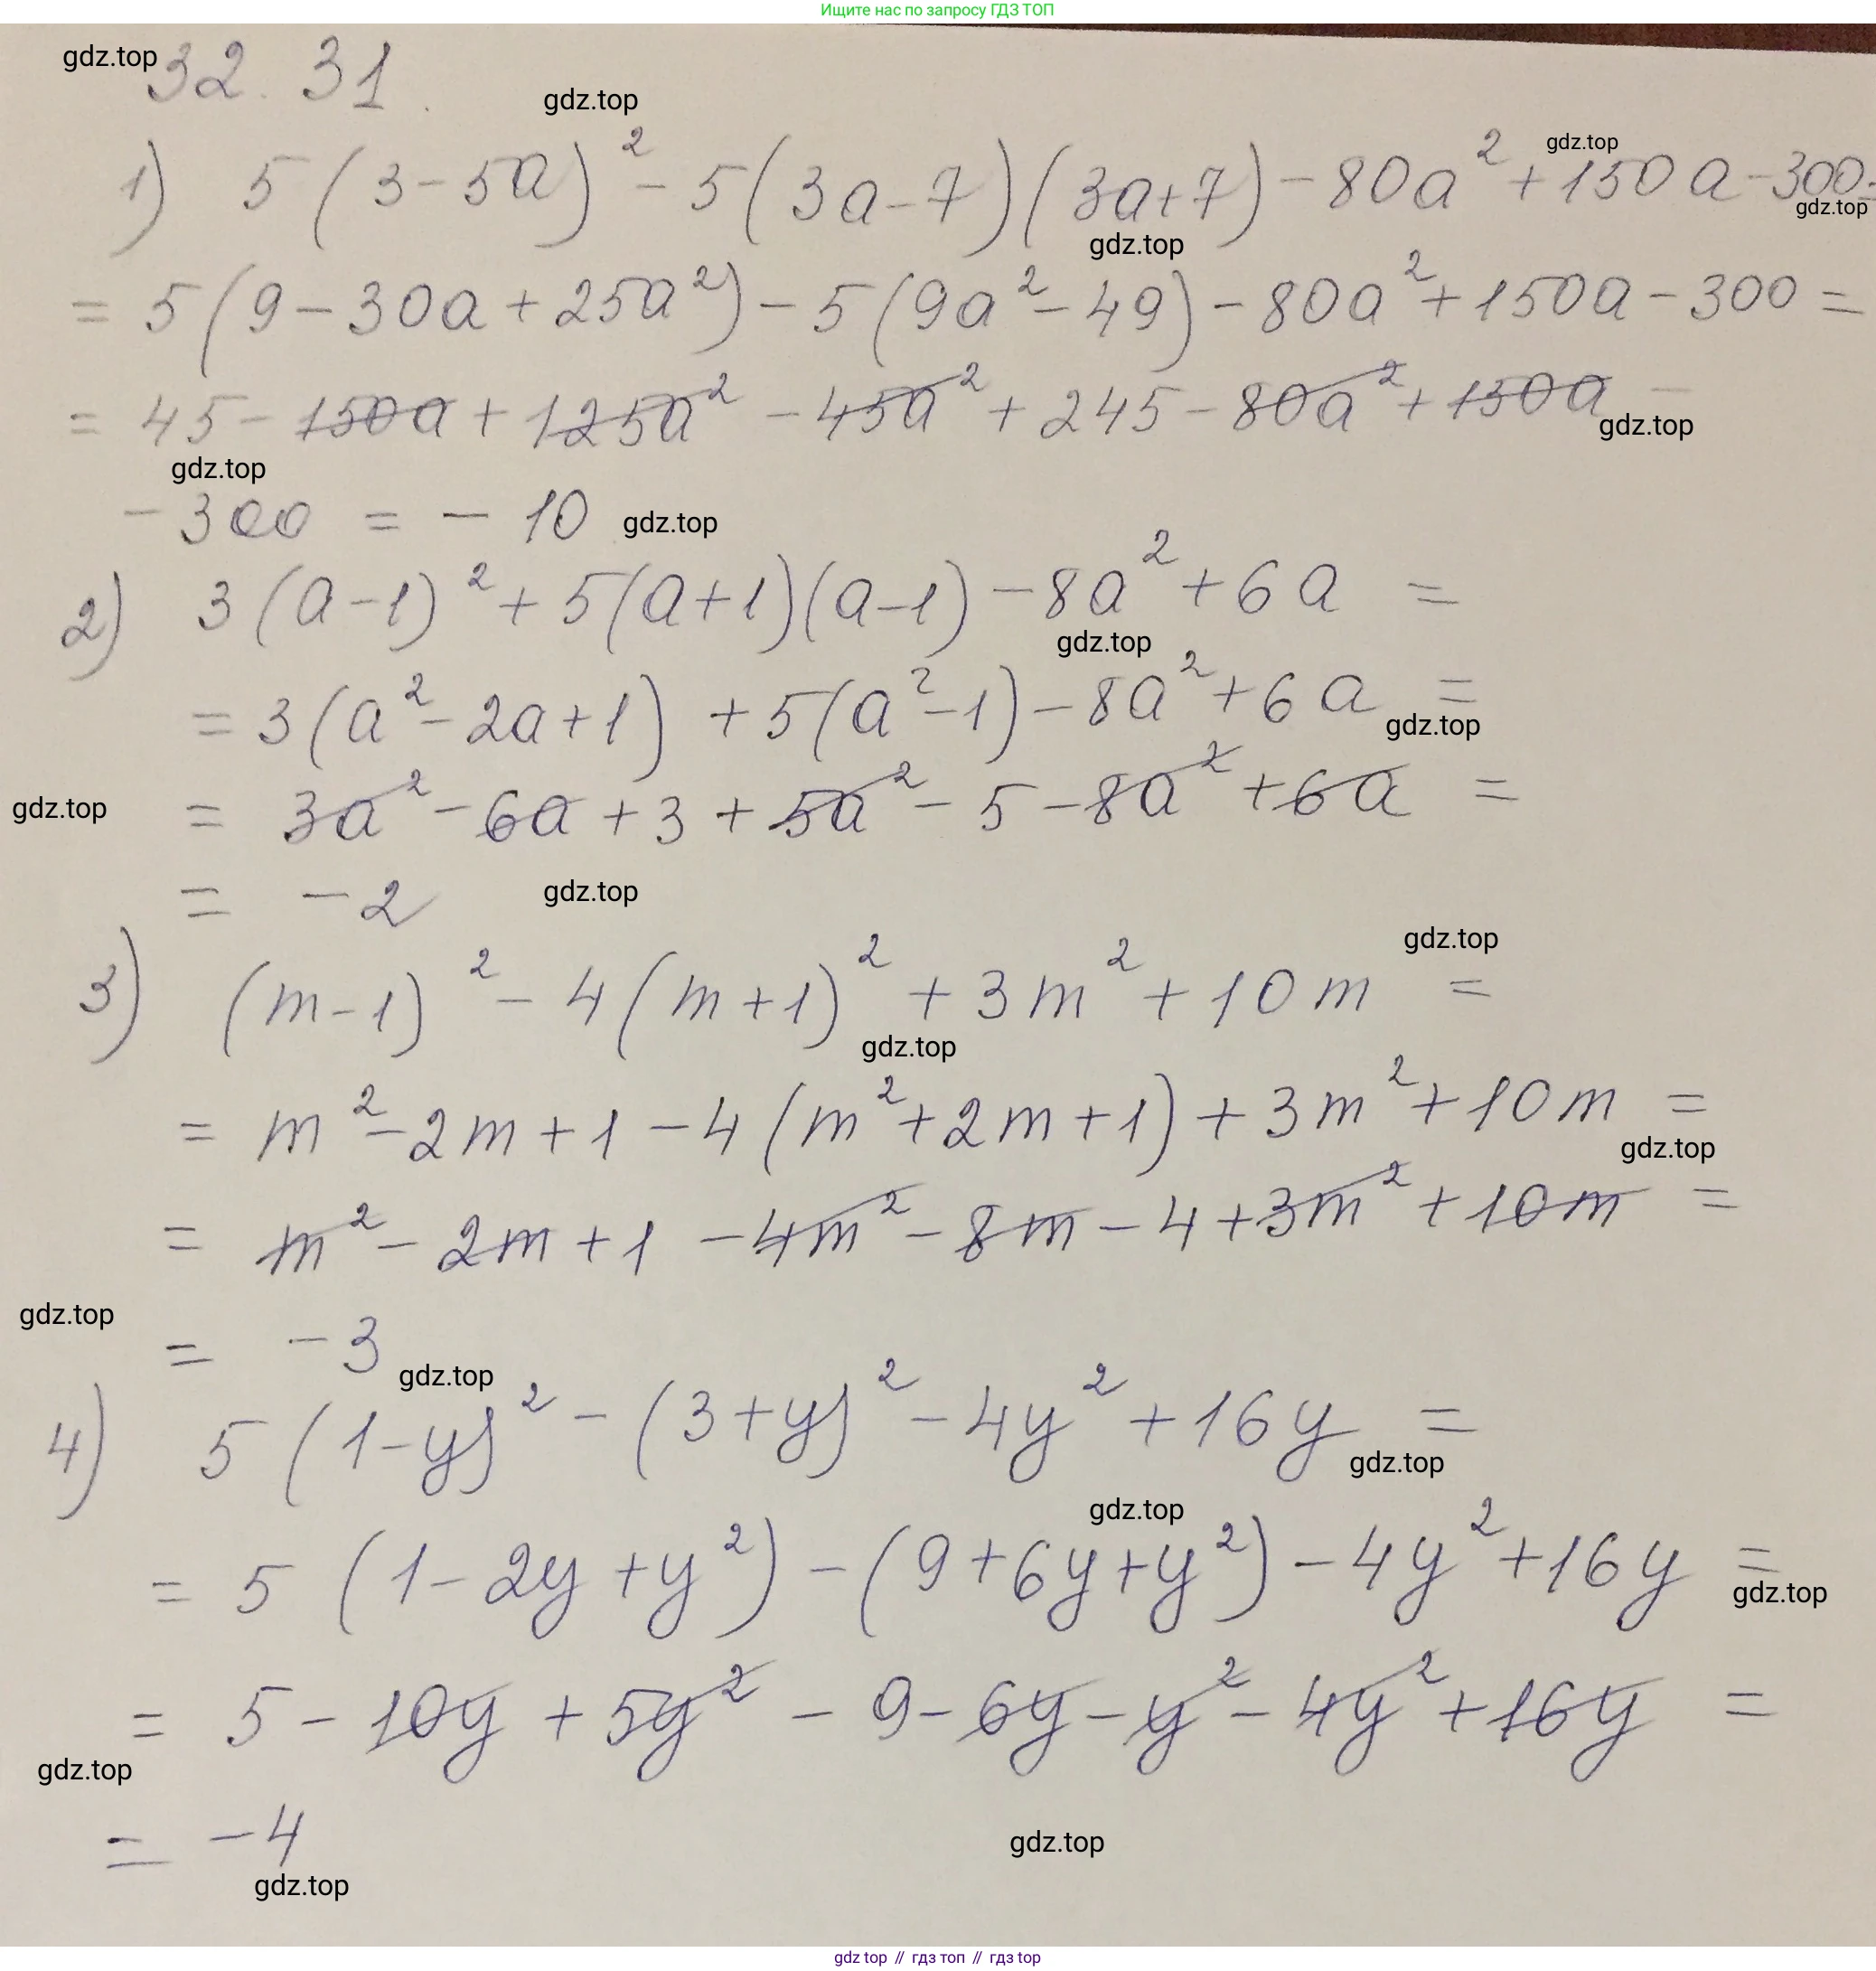 Ищите нас по запросу ГДЗ ТОП
gdz.top
32.31.
gdz.top
1) 5(3-5a)² - 5(3a-7)(3a+7) - 80a² + 150a - 300 =
gdz.top
gdz.top
gdz.top
= 5(9 - 30a + 25a²) - 5(9a² - 49) - 80a² + 150a - 300 =
= 45 - 150a + 125a² - 45a² + 245 - 80a² + 150a -
gdz.top
gdz.top
- 300 = - 10
gdz.top
2) 3(a-1)² + 5(a+1)(a-1) - 8a² + 6a =
gdz.top
= 3(a² - 2a + 1) + 5(a² - 1) - 8a² + 6a =
gdz.top
gdz.top
= 3a² - 6a + 3 + 5a² - 5 - 8a² + 6a =
= - 2
gdz.top
gdz.top
3) (m-1)² - 4(m+1)² + 3m² + 10m =
gdz.top
= m² - 2m + 1 - 4(m² + 2m + 1) + 3m² + 10m =
gdz.top
= m² - 2m + 1 - 4m² - 8m - 4 + 3m² + 10m =
gdz.top
= - 3
gdz.top
4) 5(1-y)² - (3+y)² - 4y² + 16y =
gdz.top
gdz.top
= 5(1 - 2y + y²) - (9 + 6y + y²) - 4y² + 16y =
gdz.top
= 5 - 10y + 5y² - 9 - 6y - y² - 4y² + 16y =
gdz.top
= - 4
gdz.top
gdz.top
gdz top // гдз топ // gdz top